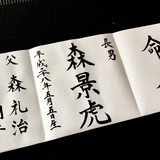 命名
長男
森景虎
平成二八年五月五日生
父 森礼治